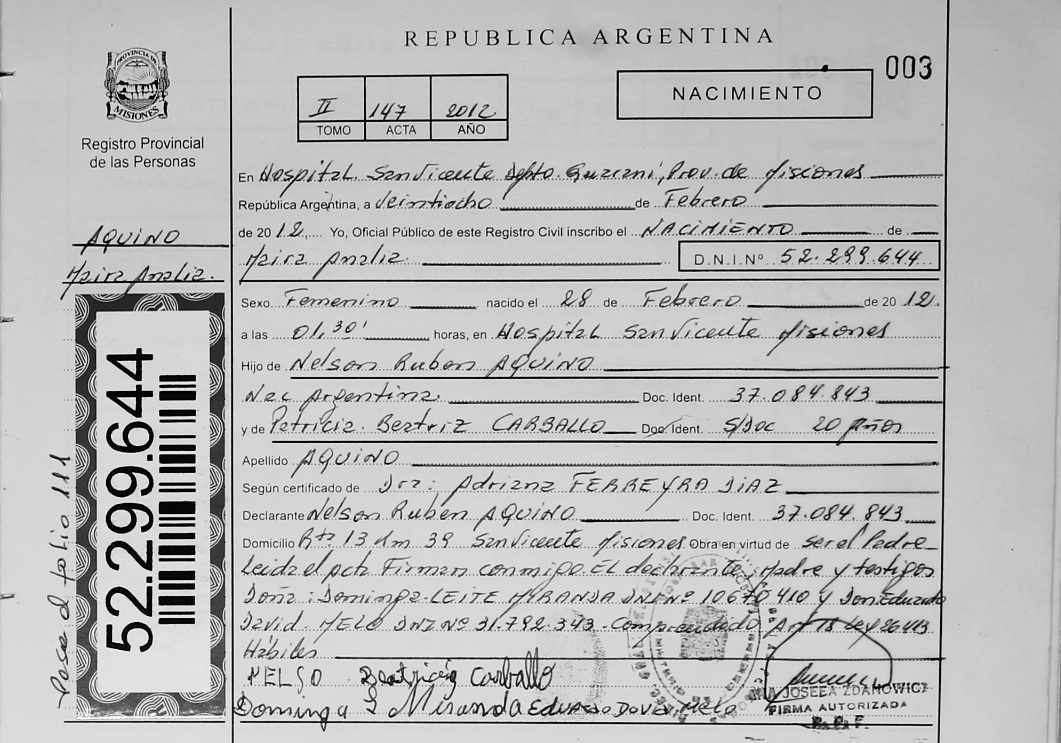 REPUBLICA ARGENTINA
003
PROVINCIA DE
MISIONES
Registro Provincial
de las Personas
II 147 2012
TOMO ACTA AÑO
NACIMIENTO
En Hospital San Vicente Dpto. Guarani, Prov. de Misiones
República Argentina, a Veintiocho de Febrero
de 2012 Yo, Oficial Público de este Registro Civil inscribo el NACIMIENTO de
Maira Analia D.N.I.Nº 52.299.644
AQUINO
Maira Analia.
Sexo Femenino nacido el 28 de Febrero de 2012.
a las 01,30' horas, en Hospital San Vicente Misiones
Hijo de Nelson Ruben AQUINO
Nac Argentina. Doc. Ident. 37.084.843
y de Patricia Beatriz CARBALLO Doc. Ident. S/Doc 20 Años
Apellido AQUINO
Según certificado de Dra: Adriana FERREYRA DIAZ
Declarante Nelson Ruben AQUINO Doc. Ident. 37.084.843
Domicilio Rta 13 dm 39 San Vicente Misiones Obra en virtud de ser el Padre
Leida el acta Firman conmigo El declarante, Madre y testigos
Doña: Dominga LEITE MIRANDA DNI Nº 10670410 y Don Eduardo
David MELO DNI Nº 31.792.343. Comprendido Art 18 Ley 26413
Hábiles
NELSO Beatriz Carballo
Dominga L Miranda EDUARDO DAVID MELO
52.299.644
Pasa al folio 111
JOSEFA ZDANOWICZ
FIRMA AUTORIZADA
R. P. P.